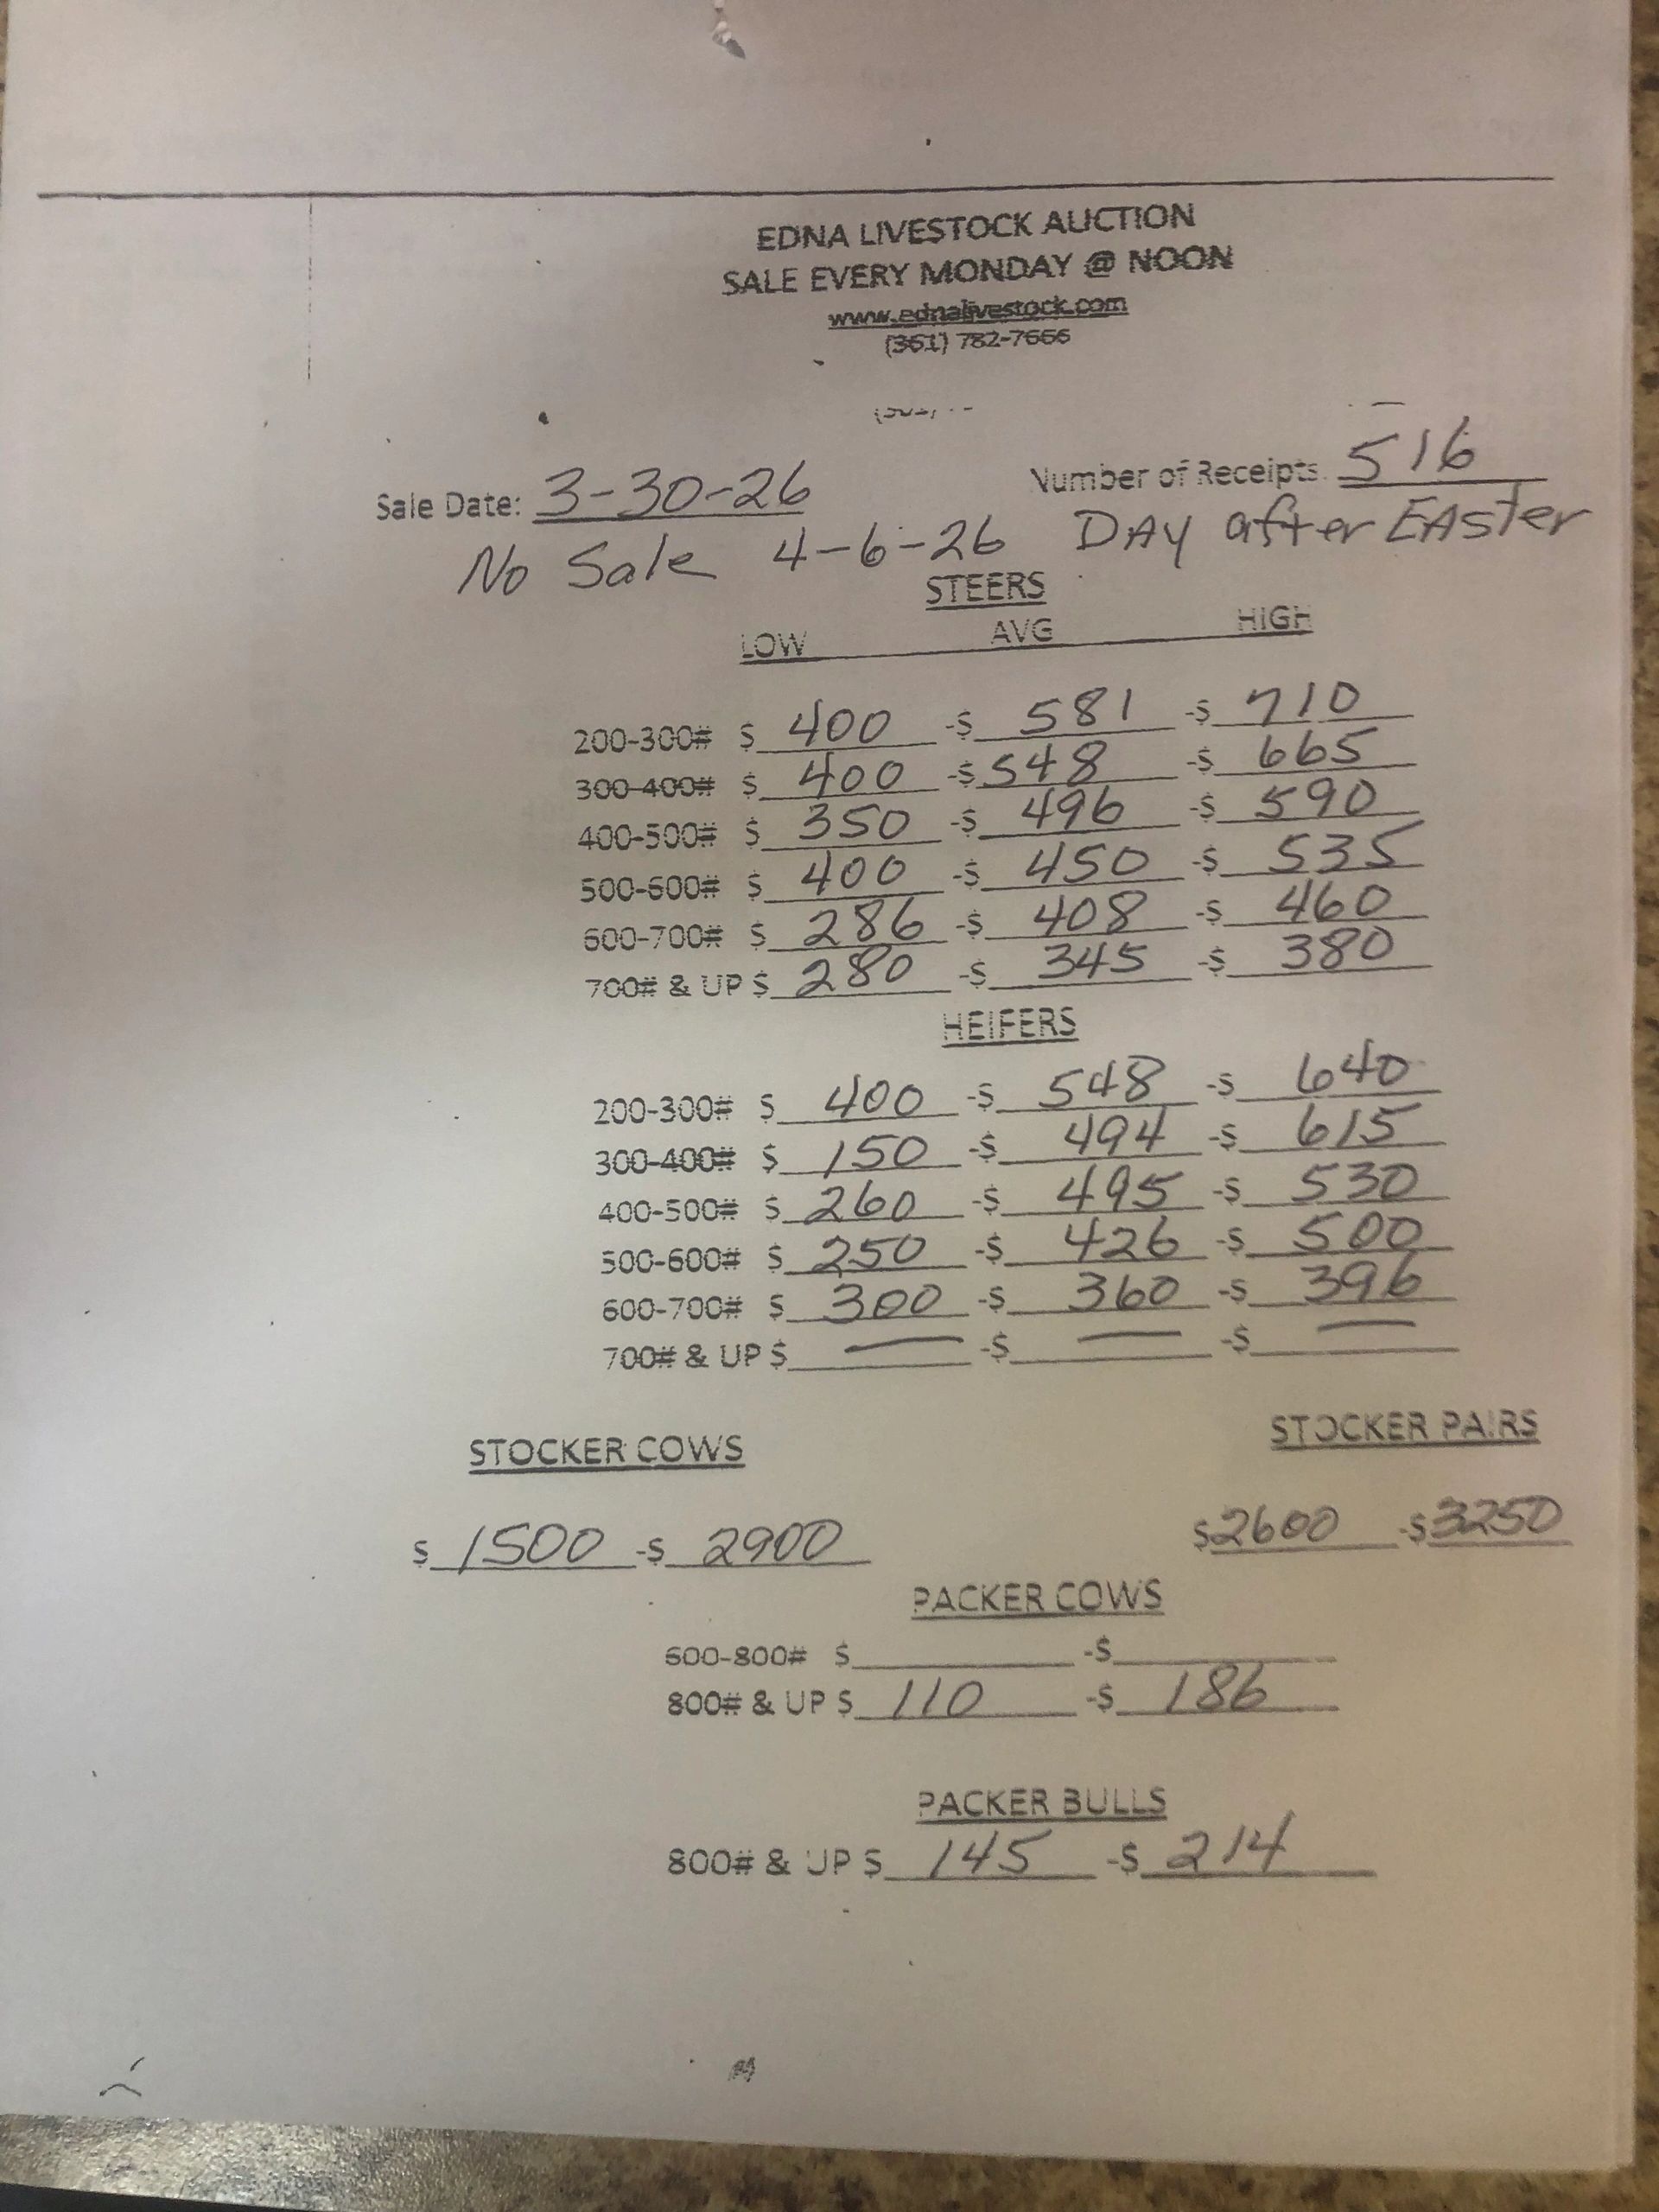 EDNA LIVESTOCK AUCTION
SALE EVERY MONDAY @ NOON
www.ednalivestock.com
(361) 782-7666
Sale Date: 3-30-26 Number of Receipts 516
No Sale 4-6-26 DAY after EASter
STEERS
LOW AVG HIGH
200-300# $ 400 -$ 581 -$ 710
300-400# $ 400 -$ 548 -$ 665
400-500# $ 350 -$ 496 -$ 590
500-600# $ 400 -$ 450 -$ 535
600-700# $ 286 -$ 408 -$ 460
700# & UP $ 280 -$ 345 -$ 380
HEIFERS
200-300# $ 400 -$ 548 -$ 640
300-400# $ 150 -$ 494 -$ 615
400-500# $ 260 -$ 495 -$ 530
500-600# $ 250 -$ 426 -$ 500
600-700# $ 300 -$ 360 -$ 396
700# & UP $ — -$ — -$ —
STOCKER COWS STOCKER PAIRS
$ 1500 -$ 2900 $2600 -$3250
PACKER COWS
600-800# $ -$
800# & UP $ 110 -$ 186
PACKER BULLS
800# & UP $ 145 -$ 214